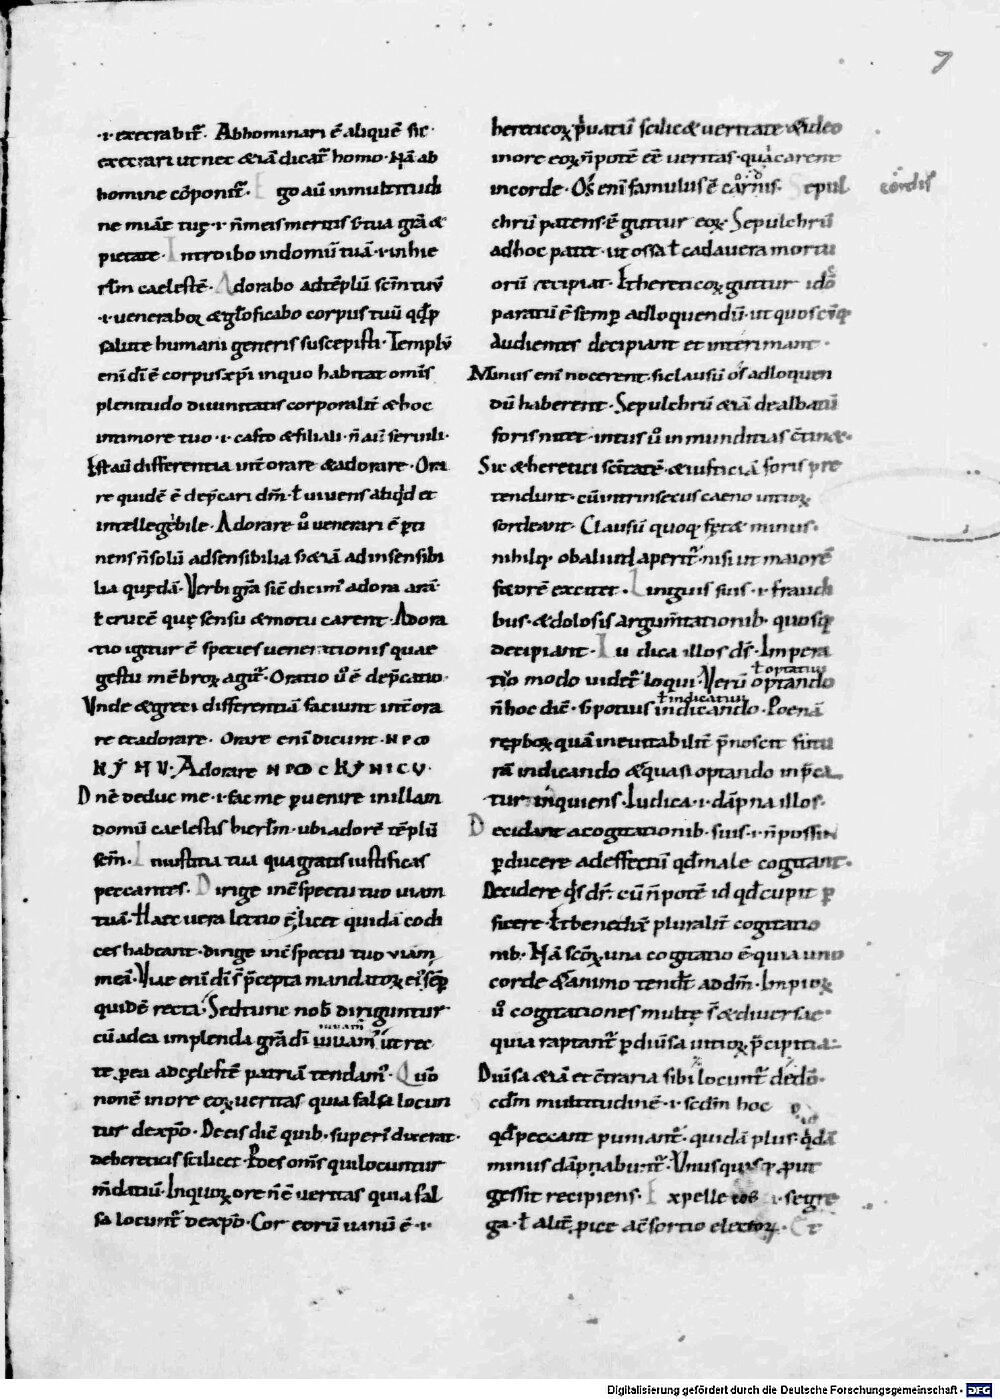 7
·i· execrabit᷑. Abhominari ē aliquē sic
execrari ut nec &iā dicat᷑ homo· Nā ab
homine cōponit᷑. Ego aut̄ in multitudi
ne miāe tuę ·i· n̄ meis meritis s; tua gr̄a &
pietate. Introibo in domū tuā ·i· in hie
rl̄m caelestē. Adorabo ad tēplū sc̄m tuū
·i· venerabor & gl̄oficabo corpus tuū qd̄ p̱
salute humani generis suscepisti· Templū
eni di ē corpus xp̄i in quo habitat omīs
plenitudo divinitatis corporalit̄ & hoc
in timore tuo ·i· casto & filiali· n̄ aut̄ servili·
Est aut̄ differentia int̄ orare & adorare· Ora
re quidē ē dep̄cari dm̄· ł vivens aliqd et
intellegibile· Adorare ů venerari ē p̱ti
nens n̄ solū ad sensibilia s; &iā ad insensibi
lia quędā· Verbi gr̄a sic̄ dicim᷒ adora arā
ł crucē quę sensu & motu carent· Adora
tio igitur ē species venerationis quae
gestu mēbroꝝ agit᷑· Oratio ů ē dep̄catio·
Unde & greci differentiā faciunt int̄ ora
re et adorare· Orare eni dicunt· ΠΡΟ
Adorare
Dn̄e deduc me ·i· fac me p̱venire in illam
domū caelestis hierl̄m· ubi adorē tēplū
sc̄m. In iustitia tua qua gratis iustificas
peccantes. Dirige in c̄spectu tuo viam
tuā· Haec vera lectio ē, licet quidā codi
ces habeant· dirige in c̄spectu tuo viam
meā· Viae eni di s̄ p̄cepta mandatoꝝ ei᷒ sēp̱
quidē recta· Sed tunc nob̄ diriguntur
cū ad ea implenda gr̄a di iuvam᷑ ut rec
te p̱ ea ad cęlestē patriā tendam᷒· Quo
non ē in ore eoꝝ veritas quia falsa locun
tur de xp̄o· De eis dic̄ quib; superi᷒ dixerat·
de hereticis scilicet· P̱des om̄s qui locuntur
m̄datiū· In quoꝝ ore n̄ ē veritas quia fal
sa locunt᷑ de xp̄o· Cor eorū vanū ē ·i·
hereticoꝝ p̱vatū scilic& veritate & ideo
in ore eoꝝ n̄ potē eē veritas· qua carent
in corde· Os eni famulus ē carnis. Sepul
cordis
chrū patens ē guttur eoꝝ· Sepulchrū
ad hoc patet· ut ossa ł cadavera mortu
orū recipiat· Et hereticoꝝ guttur ideo
paratū ē semp̱ ad loquendū· ut quoscūq;
audientes decipiant et interimant·
Minus eni nocerent· si clausū os ad loquen
dū haberent· Sepulchrū &iā dealbatū
foris nitet· intus ů inmunditias c̄tin&·
Sic & heretici sc̄itatē· & iusticiā foris pre
tendunt· cū intrinsecus caeno vitioꝝ
sordeant· Clausū quoq; fęt& minus·
nihilq; obaliud aperit᷑· nisi ut maiorē
foetorē excitet· Linguis suis ·i· fraudi
bus· & dolosis argum̄tationib; quosq;
decipiant· Iudica illos ds̄· Impera
tivo modo videt᷑ loqui· Verū optando
ł optativi
ł indicativi
n̄ hoc dic̄· s; potius indicando· Poenā
reꝓboꝝ quā inevitabilit̄ p̄noscit futu
rā indicando & quasi optando inp̄ca
tur inquiens· Iudica ·i· dāpna illos·
Decidant a cogitationib; suis ·i· n̄ possin
p̱ducere ad effectū qd̄ male cogitant·
Decidere q̄s dr̄· cū n̄ potē id qd̄ cupit p̱
ficere· Et bene dixē pluralit̄ cogitatio
nib; Nā sc̄oꝝ una cogitatio ē· quia uno
corde & animo tendt ad dm̄· Impioꝝ
ů cogitationes multę s̄ & diversae·
quia raptant᷑ p̱ div̄sa vitioꝝ p̄cipitia·
Div̄sa &iā et c̄traria sibi locunt᷑ de dō·
Scdm̄ multitudinē ·i· scdm̄ hoc
qd̄ peccant puniant᷑· quidā plus· q̇dā
minus dāpnabunt᷑· Unusquisq; p̱ut
gessit recipiens· Expelle eos ·i· segre
ga· ł alit̄ p̱ice a c̄sortio electoꝝ· Et
Digitalisierung gefördert durch die Deutsche Forschungsgemeinschaft - DFG